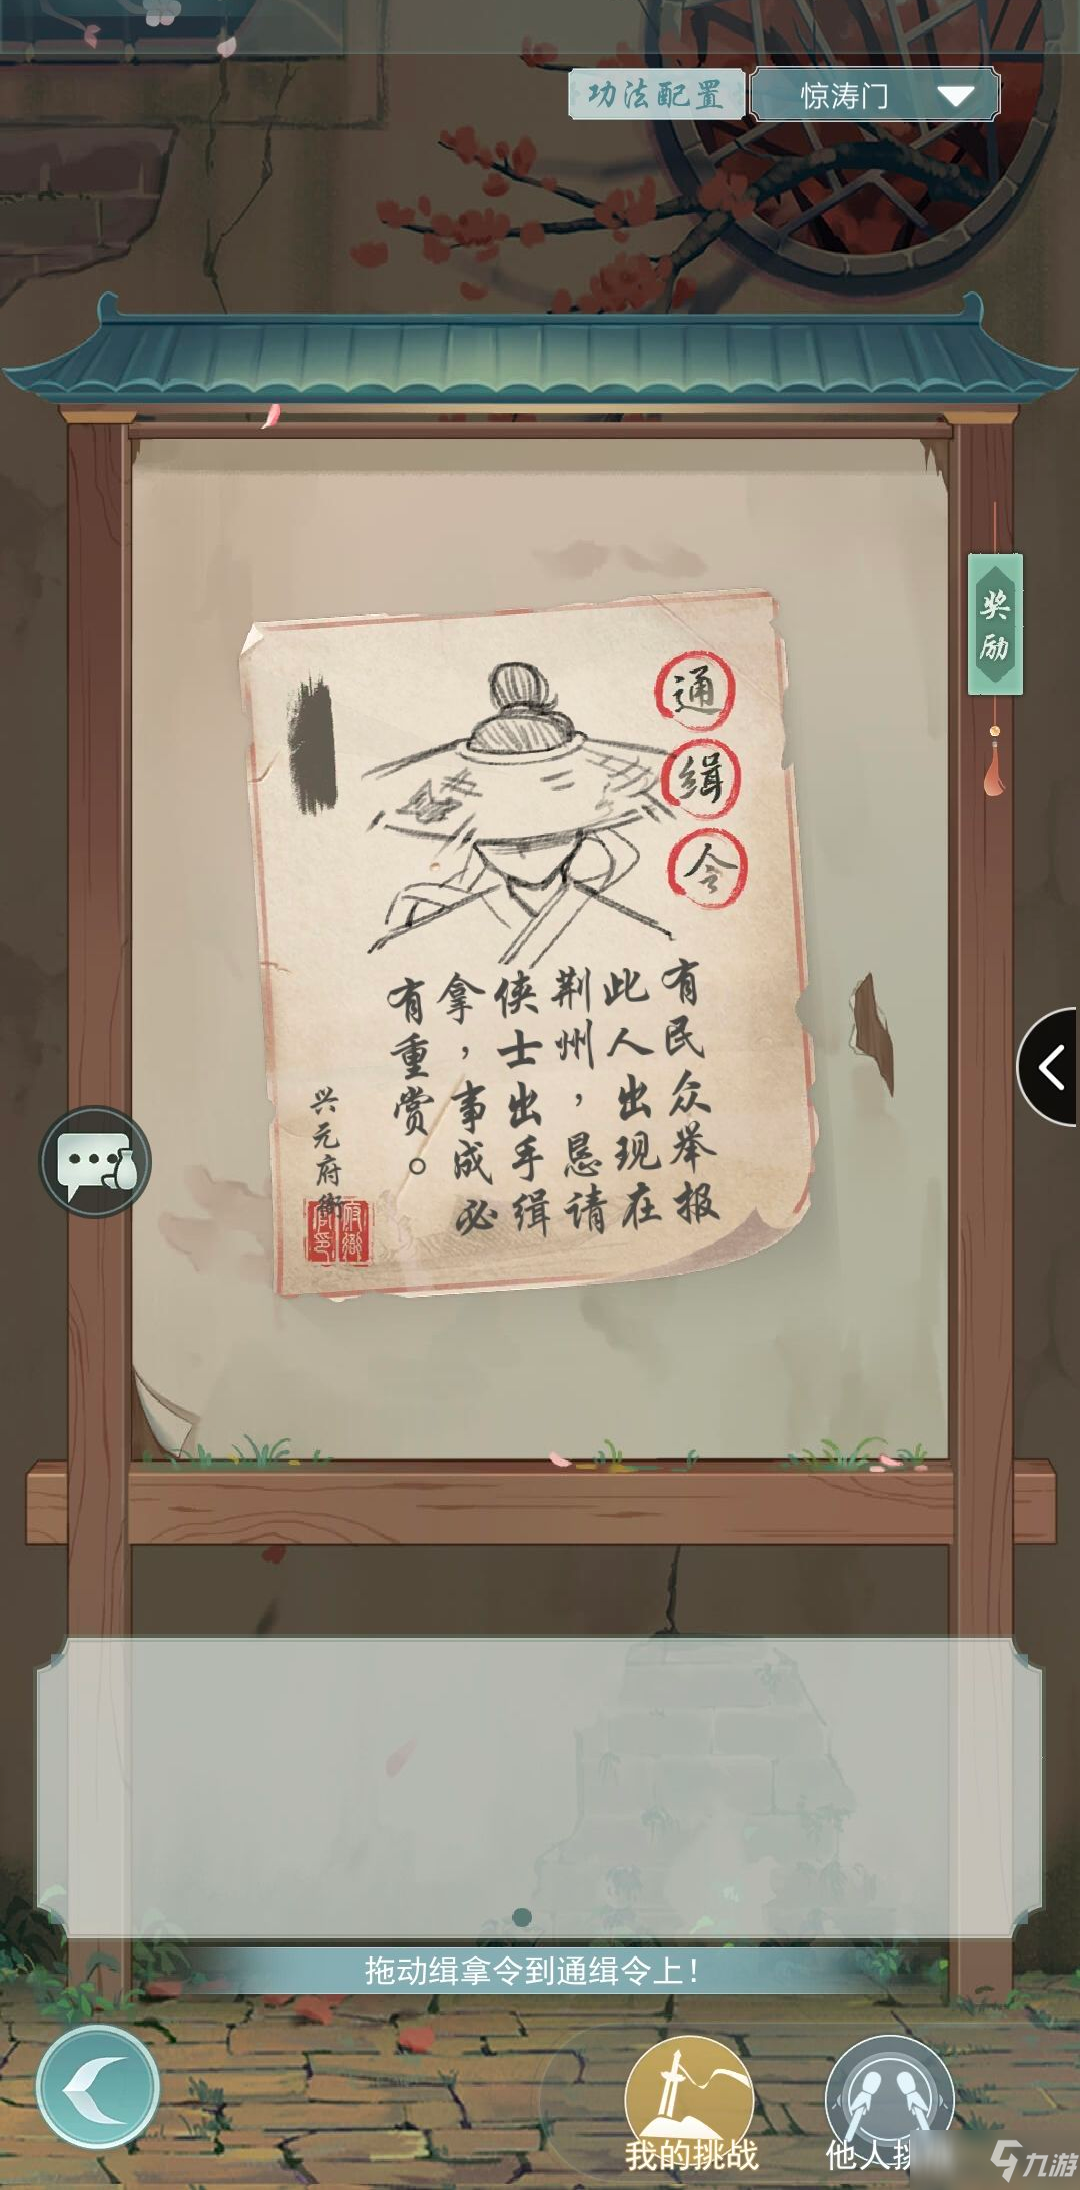 功法配置
惊涛门
奖励
通缉令
有民众举报
此人出现在
荆州，恳请
侠士出手缉
拿，事成必
有重赏。
兴元府衙
拖动缉拿令到通缉令上！
我的挑战
他人挑
九游